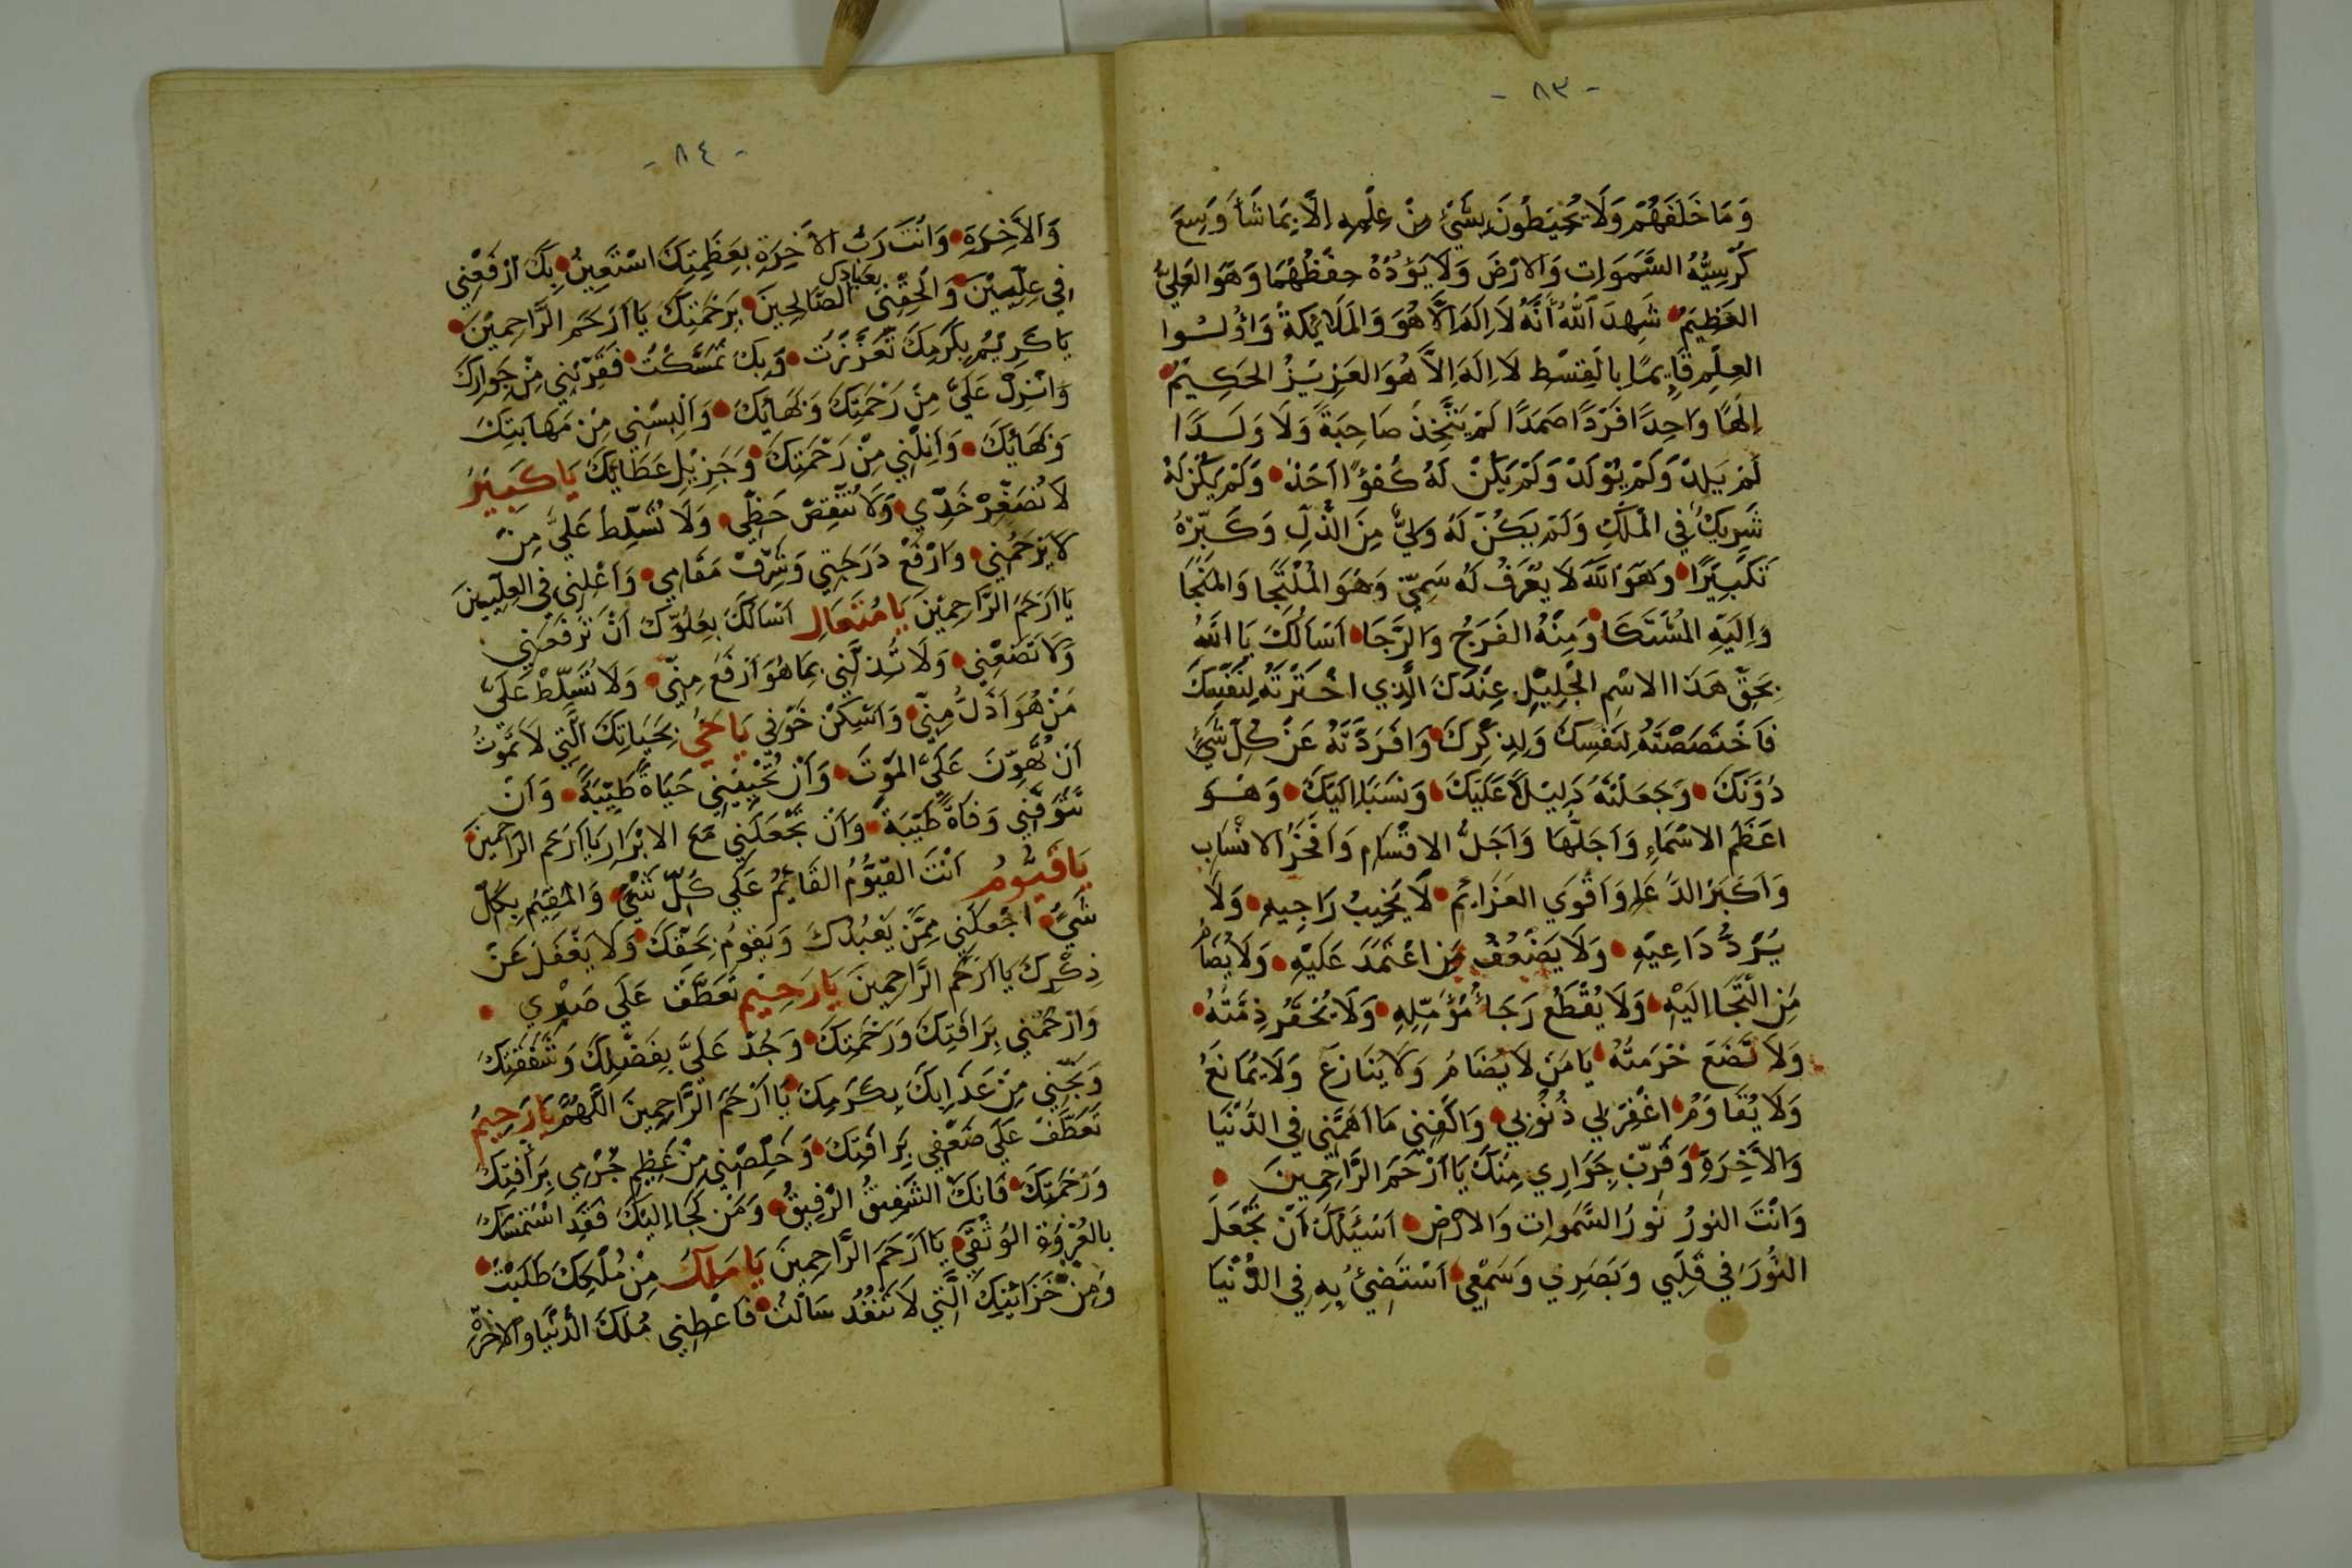 - ٨٣ -
وَمَا خَلْفَهُمْ وَلَا يُحِيطُونَ بِشَيْءٍ مِنْ عِلْمِهِ اِلَّا بِمَا شَاءَ وَسِعَ
كُرْسِيُّهُ السَّمَوَاتِ وَالْاَرْضَ وَلَا يَؤُدُهُ حِفْظُهُمَا وَهُوَ العَلِيُّ
العَظِيمُ شَهِدَ اللّٰهُ أَنَّهُ لَا اِلَهَ اِلَّا هُوَ وَالمَلَايِكَةُ وَاُولُوا
العِلْمِ قَايِمًا بِالْقِسْطِ لَا اِلَهَ اِلَّا هُوَ العَزِيْزُ الحَكِيْمُ
اِلَهًا وَاحِدًا فَرْدًا صَمَدًا لَمْ يَتَّخِذْ صَاحِبَةً وَلَا وَلَدًا
لَمْ يَلِدْ وَلَمْ يُوْلَدْ وَلَمْ يَكُنْ لَهُ كُفُؤًا اَحَدٌ وَلَمْ يَكُنْ لَهُ
شَرِيكٌ فِي المُلْكِ وَلَمْ يَكُنْ لَهُ وَلِيٌّ مِنَ الذُّلِّ وَكَبِّرْهُ
تَكْبِيْرًا وَهُوَ اللّٰهُ لَا يُعْرَفُ لَهُ سَمِيّ وَهُوَ المُلْتَجَا وَالمَنْجَا
وَاِلَيْهِ المُشْتَكَا وَمِنْهُ الفَرَجُ وَالرَّجَا اَسْاَلُكَ يَا اللّٰهُ
بِحَقِّ هَذَا الاسْمِ الجَلِيْلِ عِنْدَكَ الَّذِي اخْتَرْتَهُ لِنَفْسِكَ
فَاخْتَصَصْتَهُ لِنَفْسِكَ وَلِذِكْرِكَ وَافْرَدْتَهُ عَنْ كُلِّ شَيْءٍ
دُوْنَكَ وَجَعَلْتَهُ دَلِيْلًا عَلَيْكَ وَنَسَبًا اِلَيْكَ وَهُوَ
اعْظَمُ الاسْمَاءِ وَاَجَلُّهَا وَاَجَلُّ الاقْسَامِ وَافْخَرُ الانْسَابِ
وَاَكْبَرُ الدُّعَاءِ وَاَقْوَي العَزَايِمِ لَا يَخِيبُ رَاجِيهِ وَلَا
يُرَدُّ دَاعِيْهِ وَلَا يَضْعُفُ مَنِ اعْتَمَدَ عَلَيْهِ وَلَا يُضَامُ
مَنِ الْتَجَا اِلَيْهِ وَلَا يُقْطَعُ رَجَاءُ مُؤَمِّلِهِ وَلَا يُحْقَرُ ذِمَّتُهُ
وَلَا تُضَعْ حُرْمَتُهُ يَا مَنْ لَا يُضَامُ وَلَا يُنَازَعُ وَلَا يُمَانَعُ
وَلَا يُقَاوَمُ اغْفِرْ لِي ذُنُوْبِي وَاكْفِنِي مَا اَهَمَّنِي فِي الدُّنْيَا
وَالْاَخِرَةِ وَقَرِّبْ جِوَارِي مِنْكَ يَا اَرْحَمَ الرَّاحِمِينَ
وَانْتَ النورُ نُورُ السَّمَوَاتِ وَالارْضِ اَسْئَلُكَ اَنْ تَجْعَلَ
النُّوْرَ فِي قَلْبِي وَبَصَرِي وَسَمْعِي اَسْتَضِيْءُ بِهِ فِي الدُّنْيَا
- ٨٤ -
وَالْاَخِرَةِ وَانْتَ رَبُّ الْاَخِرَةِ بِعَظَمَتِكَ اسْتَعِيْنُ بِكَ ارْفَعْنِي
فِي عِلِّيِّيْنَ وَالْحِقْنِي بعبادك الصَّالِحِينَ بِرَحْمَتِكَ يَا اَرْحَمَ الرَّاحِمِيْنَ
يَا كَرِيْمُ بِكَرَمِكَ تَعَزَّزْتُ وَبِكَ تَمَسَّكْتُ فَقَرِّبْنِي مِنْ جِوَارِكَ
وَانْزِلْ عَلَيَّ مِنْ رَحْمَتِكَ وَبَهَائِكَ وَاَلْبِسْنِي مِنْ مَهَابَتِكَ
وَبَهَائِكَ وَاَنِلْنِي مِنْ رَحْمَتِكَ وَجَزِيْلِ عَطَايِكَ يَا كَبِيْرُ
لَا تُصَغِّرْ خَدِّي وَلَا تَنْقِصْ حَظِّي وَلَا تُسَلِّطْ عَلَيَّ مِنْ
لَا يَرْحَمُنِي وَارْفَعْ دَرَجَتِي وَشَرِّفْ مَقَامِي وَاعْلِنِي فِي العِلِّيينَ
يَا اَرْحَمَ الرَّاحِمِيْنَ يَا مُتَعَالِ اَسْاَلُكَ بِعُلُوِّكَ اَنْ تَرْفَعَنِي
وَلَا تَضَعْنِي وَلَا تُذِلَّنِي بِمَا هُوَ اَرْفَعُ مِنِّي وَلَا تُسَلِّطْ عَلَيَّ
مَنْ هُوَ اَذَلُّ مِنِّي وَاَسْكِنْ خَوْفِي يَا حَيُّ بِحَيَاتِكَ الَّتِي لَا تَمُوْتُ
اَنْ تُهَوِّنَ عَلَيَّ المَوْتَ وَاَنْ تُحْيِيَنِي حَيَاةً طَيِّبَةً وَاَنْ
تَتَوَفَّنِي وَفَاةً طَيِّبَةً وَاَنْ تَجْعَلَنِي مَعَ الابْرَارِ يَا اَرْحَمَ الرَّاحِمِينَ
يَا قَيُّوْمُ اَنْتَ القَيُّوْمُ القَائِمُ عَلَي كُلِّ شَيْءٍ وَالمُقِيْمُ بِكُلِّ
شَيْءٍ اجْعَلْنِي مِمَّنْ يَعْبُدُكَ وَيَقُومُ بِحَقِّكَ وَلَا يَغْفَلُ عَنْ
ذِكْرِكَ يَا اَرْحَمَ الرَّاحِمِينَ يَا رَحِيْمُ تَعَطَّفْ عَلَي ضَرِّي
وَارْحَمْنِي بِرَافَتِكَ وَرَحْمَتِكَ وَجُدْ عَلَيَّ بِفَضْلِكَ وَشَفَقَتِكَ
وَنَجِّنِي مِنْ عَذَابِكَ بِكَرَمِكَ يَا اَرْحَمَ الرَّاحِمِينَ اللَّهُمَّ يَا رَحِيمُ
تَعَطَّفْ عَلَي ضَعْفِي بِرَافَتِكَ وَخَلِّصْنِي مِنْ عَظِيمِ جُرْمِي بِرَافَتِكَ
وَرَحْمَتِكَ فَانَّكَ الشَّفِيقُ الرَّفِيقُ وَمَنْ لَجَا اِلَيْكَ فَقَدِ اسْتَمْسَكَ
بِالعُرْوَةِ الوُثْقَي يَا اَرْحَمَ الرَّاحِمِينَ يَا مَلِكُ مِنْ مُلْكِكَ طَلَبْتُ
وَمِنْ خَزَائِنِكَ الَّتِي لَا تَنْفَدُ سَالْتُ فَاعْطِنِي مُلْكَ الدُّنْيَا وَالاخِرَةِ